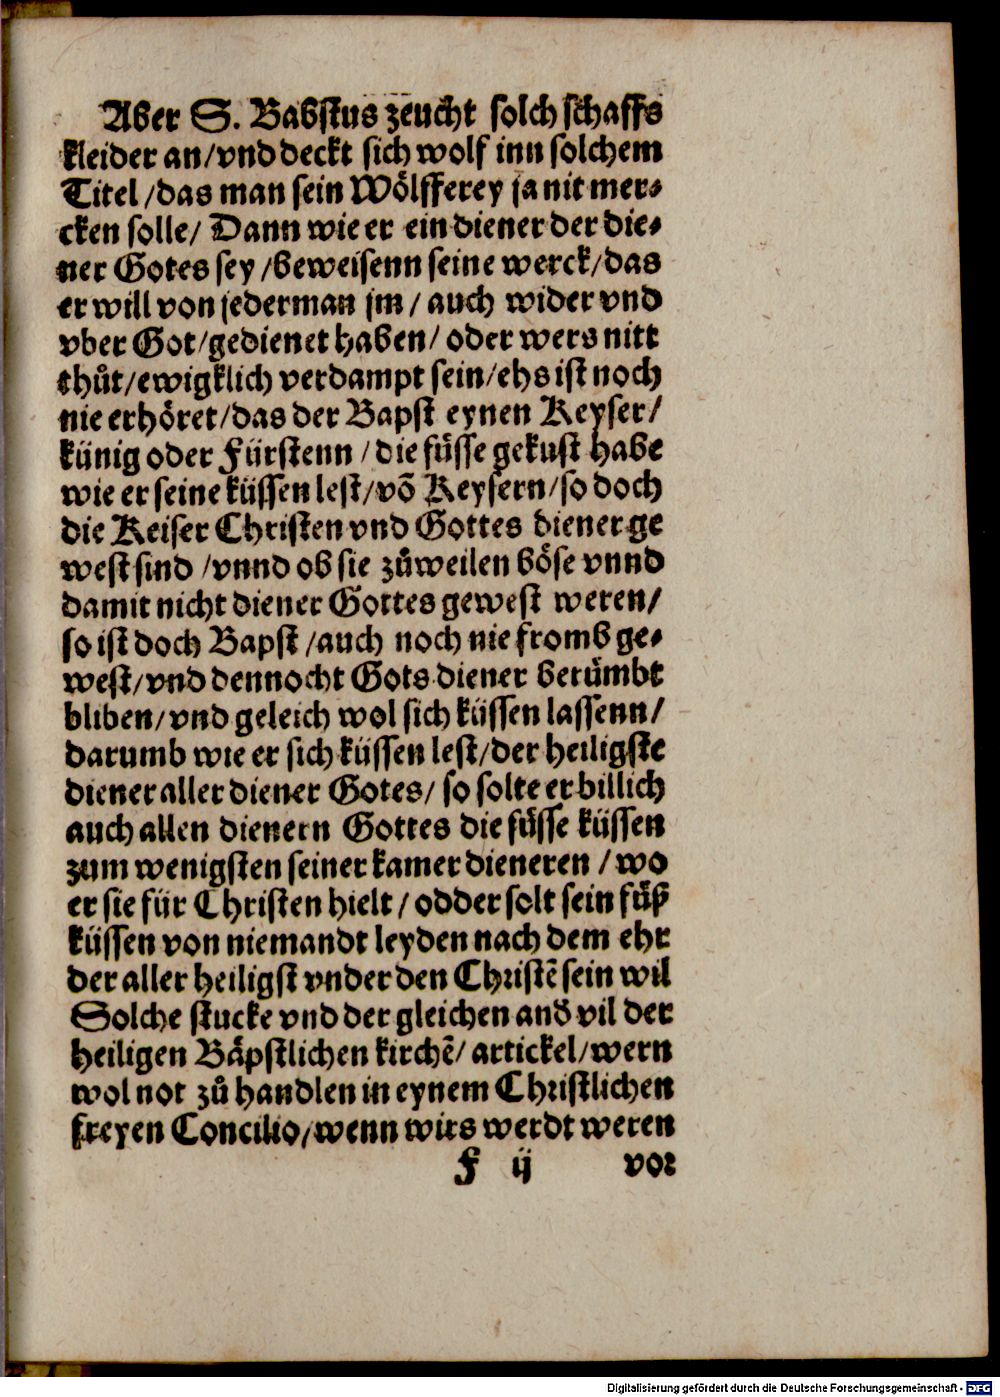 Aber S. Babstus zeucht solch schaffs
kleider an/vnd deckt sich wolf inn solchem
Titel/das man sein Wölfferey ja nit mer⸗
cken solle/ Dann wie er ein diener der die⸗
ner Gotes sey/beweisenn seine werck/das
er will von jederman jm/ auch wider vnd
vber Got/gedienet haben/ oder wers nitt
thůt/ewigklich verdampt sein/ehs ist noch
nie erhöret/das der Bapst eynen Keyser/
künig oder Fürstenn/die füsse gekust habe
wie er seine küssen lest/võ Keysern/so doch
die Keiser Christen vnd Gottes diener ge
west sind/vnnd ob sie zůweilen böse vnnd
damit nicht diener Gottes gewest weren/
so ist doch Bapst/auch noch nie fromb ge⸗
west/vnd dennocht Gots diener berümbt
bliben/vnd geleich wol sich küssen lassenn/
darumb wie er sich küssen lest/der heiligste
diener aller diener Gotes/ so solte er billich
auch allen dienern Gottes die füsse küssen
zum wenigsten seiner kamer dieneren/wo
er sie für Christen hielt/odder solt sein füß
küssen von niemandt leyden nach dem ehr
der aller heiligst vnder den Christẽ sein wil
Solche stucke vnd der gleichen and̕ vil der
heiligen Bäpstlichen kirchẽ/ artickel/wern
wol not zů handlen in eynem Christlichen
freyen Concilio/wenn wirs werdt weren
F ij vor
Digitalisierung gefördert durch die Deutsche Forschungsgemeinschaft - DFG